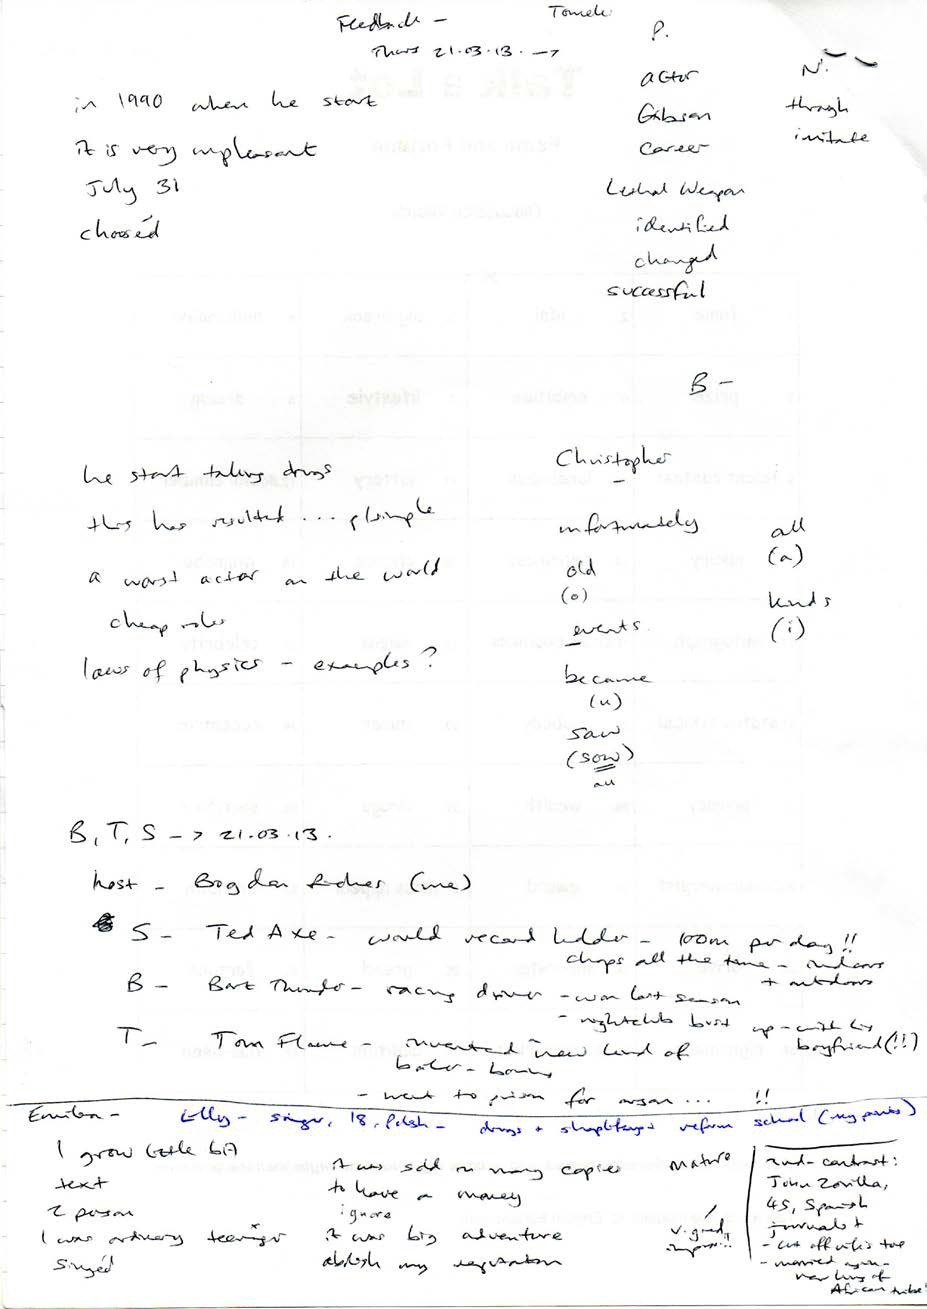 Feedback - Tomek
Thurs 21.03.13 ->
P.
N.
in 1990 when he start
it is very unpleasant
July 31
choosed
actor
Gibson
career
Lethal Weapon
identified
changed
successful
through
imitate
B -
he start taking drugs
this has resulted ...
a worst actor on the world
cheap roles
laws of physics - examples?
Christopher
unfortunately
old
(o)
events
became
(u)
saw
(sow)
all
all
(a)
kinds
(i)
B, T, S -> 21.03.13.
host - Bogdan (me)
S - Ted Axe - world record holder - 100m per day!!
chops all the time - indoors
+ outdoors
B - Bart Thunder - racing driver - won last season
- nightclub bust up - with his
boyfriend (!!)
T - Tom Flame - invented new kind of
- went to prison for arson ... !!
Emilia - Elly - singer, 18, Polish - drugs + shoplifting + reform school (my parents)
I grow little bit
text
2 person
I was ordinary teenager
singed
it was sold in many copies
to have a money
ignore
it was big adventure
abolish my reputation
mature
v. good
John Zorilla,
45, Spanish
journalist
- cut off
- married again -
African tribe!